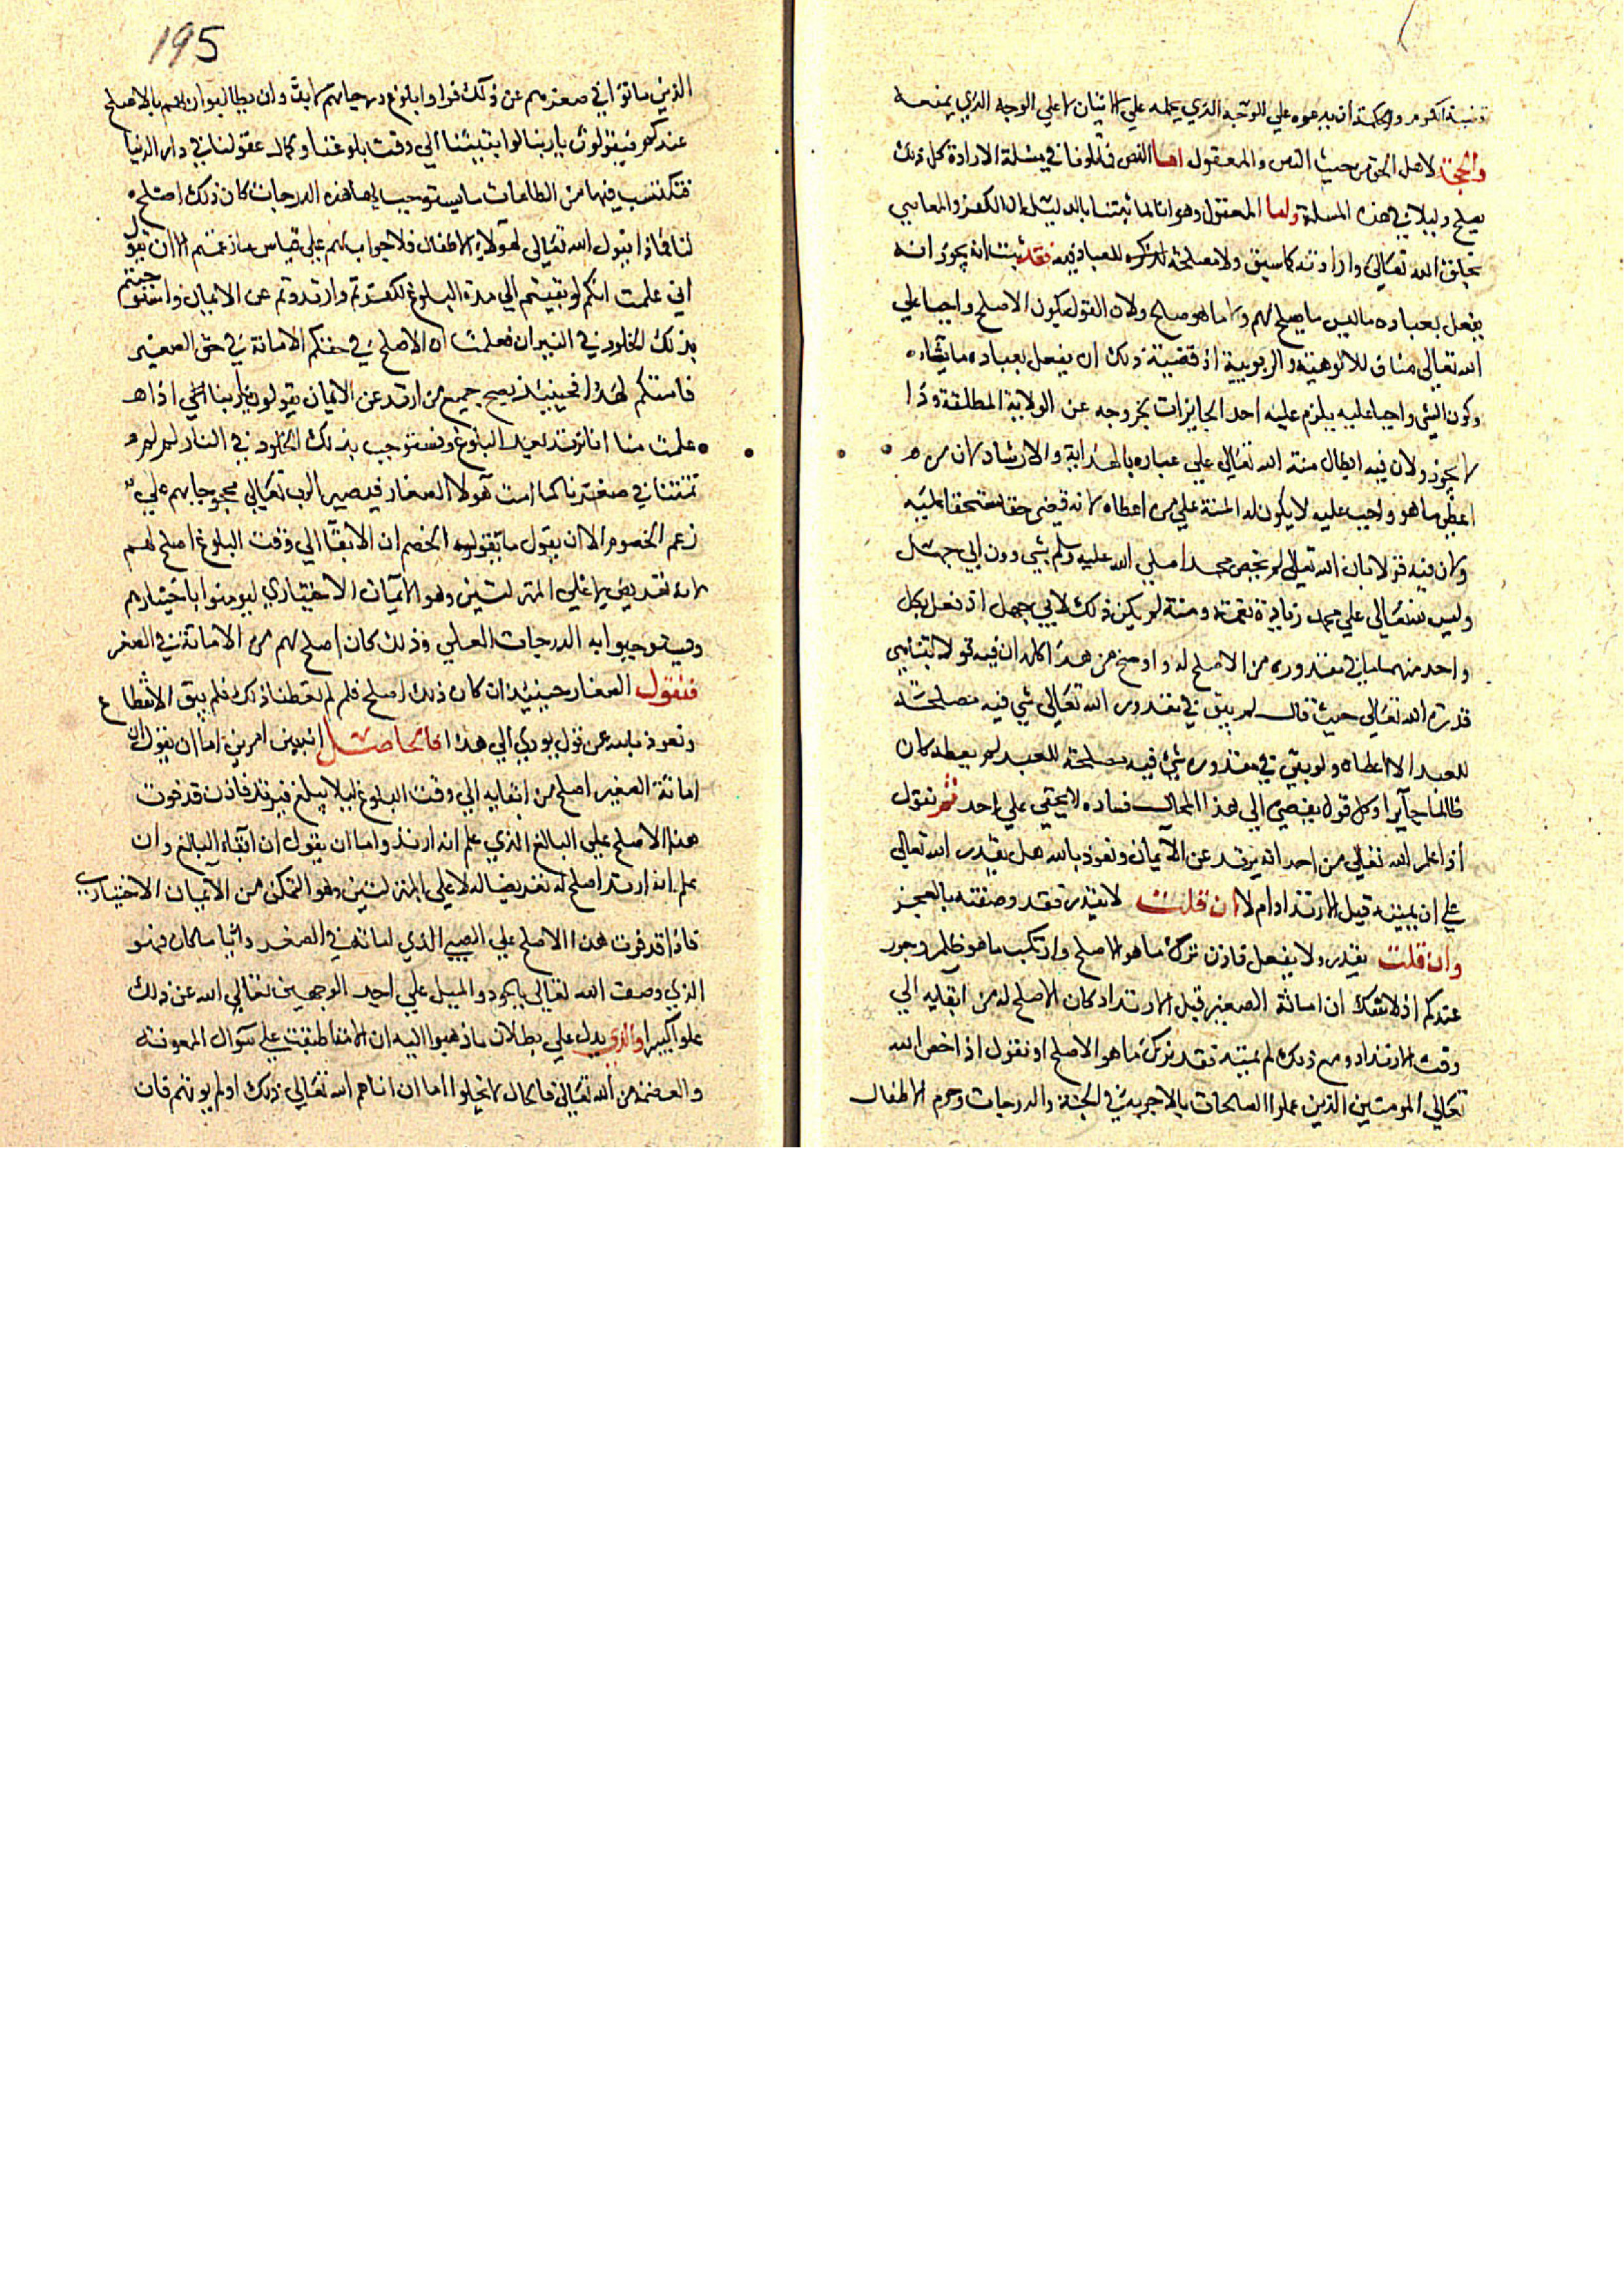 قضية الكرم والحكمة ان يدعوه علي الوجه الذي يحمله علي الاتيان لا علي الوجه الذي يمنعه
والحجة لاهل الحق من حيث النص والمعقول اما النص فتلونا في مسئلة الارادة كل ذلك
يصلح دليلا في هذه المسلة واما المعقول وهو انا لما ثبتنا بالدليل ان الكفر والمعاصي
بخلق الله تعالي وارادته كما سبق ولا مصلحة للعباد فيه فقد ثبت انه يجوز انه
يفعل بعباده ما ليس ما يصلح لهم ولا ما هو صلح ولان القول بكون الاصلح واجبا علي
الله تعالي مناف للالوهية والربوبية اذ قضية ذلك ان يفعل بعباده ما يشاء
وكون الشي واجبا عليه يلزم عليه احد الجايزات بخروجه عن الولاية المطلقة وذا
لا يجوز ولان فيه ابطال منة الله تعالي علي عباده بالهداية والارشاد لان من
اعطي ما هو واجب عليه لا يكون له المنة علي من اعطاه لانه قضي حقا مستحقا عليه
ولان فيه قولا بان الله تعالي لم يخص محمد اصلي الله عليه وسلم بشي دون ابي جهل
وليس لله تعالي علي محمد زيادة نعمة ومنة لم يكن ذلك لابي جهل اذ فعل بكل
واحد منهما ما في مقدوره من الاصلح له واوضح من هذا كله ان فيه قولا بتناهي
قدرة الله تعالي حيث قال لم يبق في مقدور الله تعالي شي فيه مصلحة
للعبد الا اعطاه ولو بقي في مقدوره شي فيه مصلحة للعبد لم يعطه كان
ظالما جآيرا وكل قول يفضي الي هذا المحال فساده لا يخفي علي احد ثم نقول
اذا علم الله تعالي من احد انه يرتد عن الايمان ونعوذ بالله هل يقدر الله تعالي
علي ان يميته قبيل الارتداد ام لا ان قلت لا يقدر فقد وصفته بالعجز
وان قلت يقدر ولا يفعل فاذن ترك ما هو الاصلح وارتكب ما هو ظلم وجور
عندكم اذ لا شك ان اماتة الصغير قبل الارتداد كان الاصلح له من ابقايه الي
وقت الارتداد ومع ذلك لم يميته فقد ترك ما هو الاصلح او نقول اذا خص الله
تعالي المومنين الذين عملوا الصالحات بالاجربة في الجنة والدرجات وحرم الاطفال
195
الذين ماتوا في صغرهم عن ذلك فراوا بلوغ درجاتهم وان يطالبوا ربهم بالاصلح
عندكم فيقولون يا ربنا لو ابقيتنا الي وقت بلوغنا وكمال عقولنا في دار الدنيا
فنكتسب فيها من الطاعات ما يستوجب لها هذه الدرجات كان ذلك اصلح
لنا فماذا يقول الله تعالي لهولاء الاطفال فلا جواب لهم علي قياس ما زعمتم الا ان يقول
اني علمت انكم لو بقيتم الي مدة البلوغ لكفرتم وارتددتم عن الايمان واستوجبتم
بذلك الخلود في النيران فعلمت ان الاصلح في حقكم الاماتة في حق الصغير
فامتكم لهذا فحينيذ يصح جميع من ارتد عن الايمان يقولون يا ربنا الهي اذا
علمت منا انا نرتد بعد البلوغ ونستوجب بذلك الخلود في النار لم لم
تمتنا في صغرنا كما امت هولا الصغار فيصير الرب تعالي محجوجا بهم علي
زعم الخصوم الا ان يقول ما يقوله الخصم ان الابقآ الي وقت البلوغ اصلح لهم
لانه تعريض لاعلي المنزلتين وهو الايمان الاختياري ليومنوا باختيارهم
ويستوجبوا به الدرجات العلي وذلك كان اصلح لهم من الاماتة في الصغر
فنقول الصغار حينيذ ان كان ذلك اصلح فلم لم تعطنا ذلك فلم يبق الانقطاع
ونعوذ بالله عن قول يودي الي هذا فالحاصل انه بين امرين اما ان يقول ان
اماتة الصغير اصلح من ابقايه الي وقت البلوغ ليلا يبلغ فيرتد فاذن قد فوت
هذا الاصلح علي البالغ الذي علم انه ارتد واما ان يقول ان ابقاء البالغ وان
علم انه ارتد اصلح له تعريضا له لاعلي المنزلتين وهو التمكن من الايمان الاختياري
فاذا قد فوت هذا الاصلح علي الصبي الذي اماته في الصغر وايا ما كان فهو
الذي وصف الله تعالي بالجود والميل علي احد الوجهين تعالي الله عن ذلك
علوا كبيرا والذي يدل علي بطلان ما ذهبوا اليه ان الامة اطبقت علي سوال المعونة
والعصمة من الله تعالي فالحال لا يخلوا اما ان اتاهم الله تعالي ذلك او لم يوتهم فان